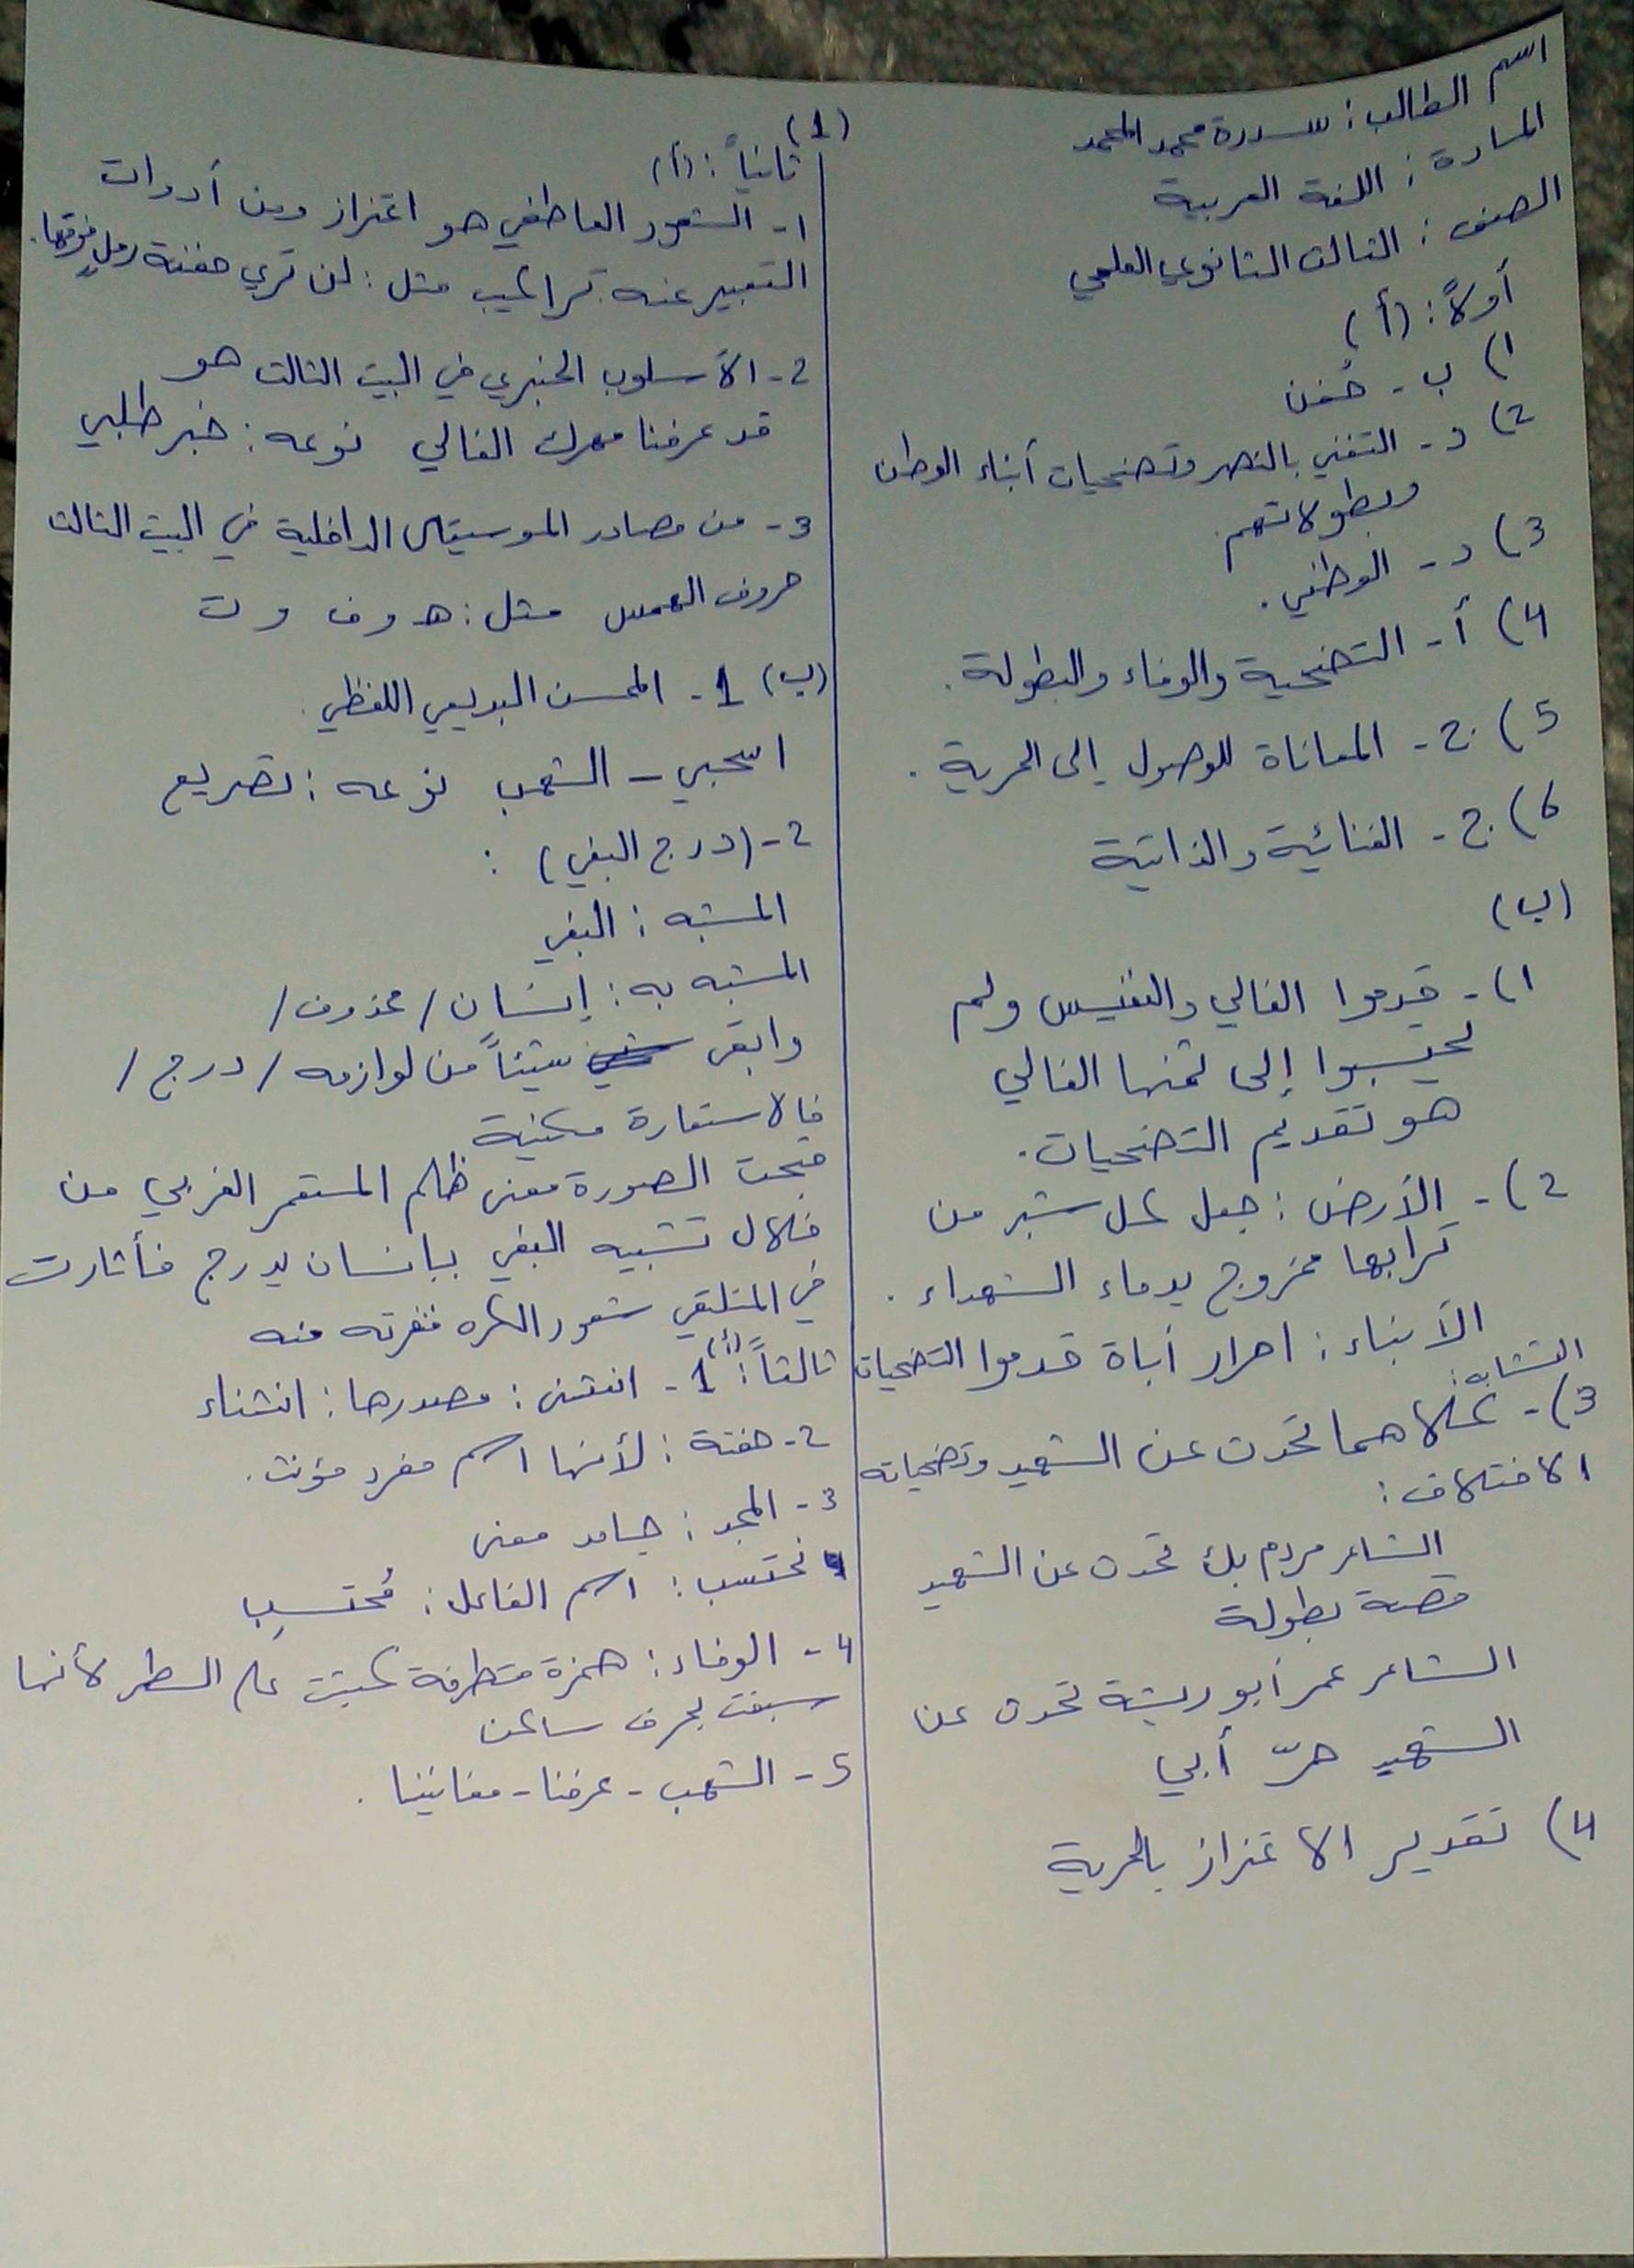 اسم الطالب: سدرة محمد المحمد
المادة: اللغة العربية
الصف: الثالث الثانوي العلمي
أولاً: (أ)
1) ب- حُفن
2) د- التغني بالنصر وتضحيات أبناء الوطن
وبطولاتهم.
3) د- الوطني.
4) أ- التضحية والوفاء والبطولة.
5) ج- المعاناة للوصول إلى الحرية.
6) ج- الغنائية والذاتية
(ب)
1)- قدموا الغالي والنفيس ولم
يحسبوا إلى ثمنها الغالي
هو تقديم التضحيات.
2)- الأرض: جعل كل شبر من
ترابها ممزوج بدماء الشهداء.
الأبناء: احرار أباة قدموا التضحيات
التشابه:
3)- كلاهما تحدث عن الشهيد وتضحياته
الاختلاف:
الشاعر مردم بك تحدث عن الشهيد
قصة بطولة
الشاعر عمر أبو ريشة تحدث عن
الشهيد حرّ أبي
4) تقدير الاعتزاز بالحرية
(1)
ثانياً: (أ)
1- الشعور العاطفي هو اعتزاز ومن أدوات
التعبير عنه تراكيب مثل: لن تري حفنة رملٍ فوقها.
2- الأسلوب الخبري في البيت الثالث هو
قد عرفنا مهرك الغالي نوعه: خبر طلبي
3- من مصادر الموسيقى الداخلية في البيت الثالث
حروف الهمس مثل: هـ وف وت
(ب) 1- المحسن البديعي اللفظي
اسحبي - الشهب نوعه: تصريع
2- (درج البغي):
المشبه: البغي
المشبه به: إنسان /محذوف/
وابقى شيئاً من لوازمه /درج/
فالاستعارة مكنية
قبحت الصورة معنى ظلم المستعمر الغربي من
خلال تشبيه البغي بإنسان يدرج فأثارت
في المتلقي شعور الكره فنفرته منه
ثالثاً: (أ) 1- انتشى: مصدرها: انتشاء
2- حفنة: لأنها اسم مفرد مؤنث.
3- المجد: جامد معنى
نحتسب: اسم الفاعل: مُحتسِب
4- الوفاء: همزة متطرفة كتبت على السطر لأنها
سبقت بحرف ساكن
5- الشهب - عرفنا - مغانينا.